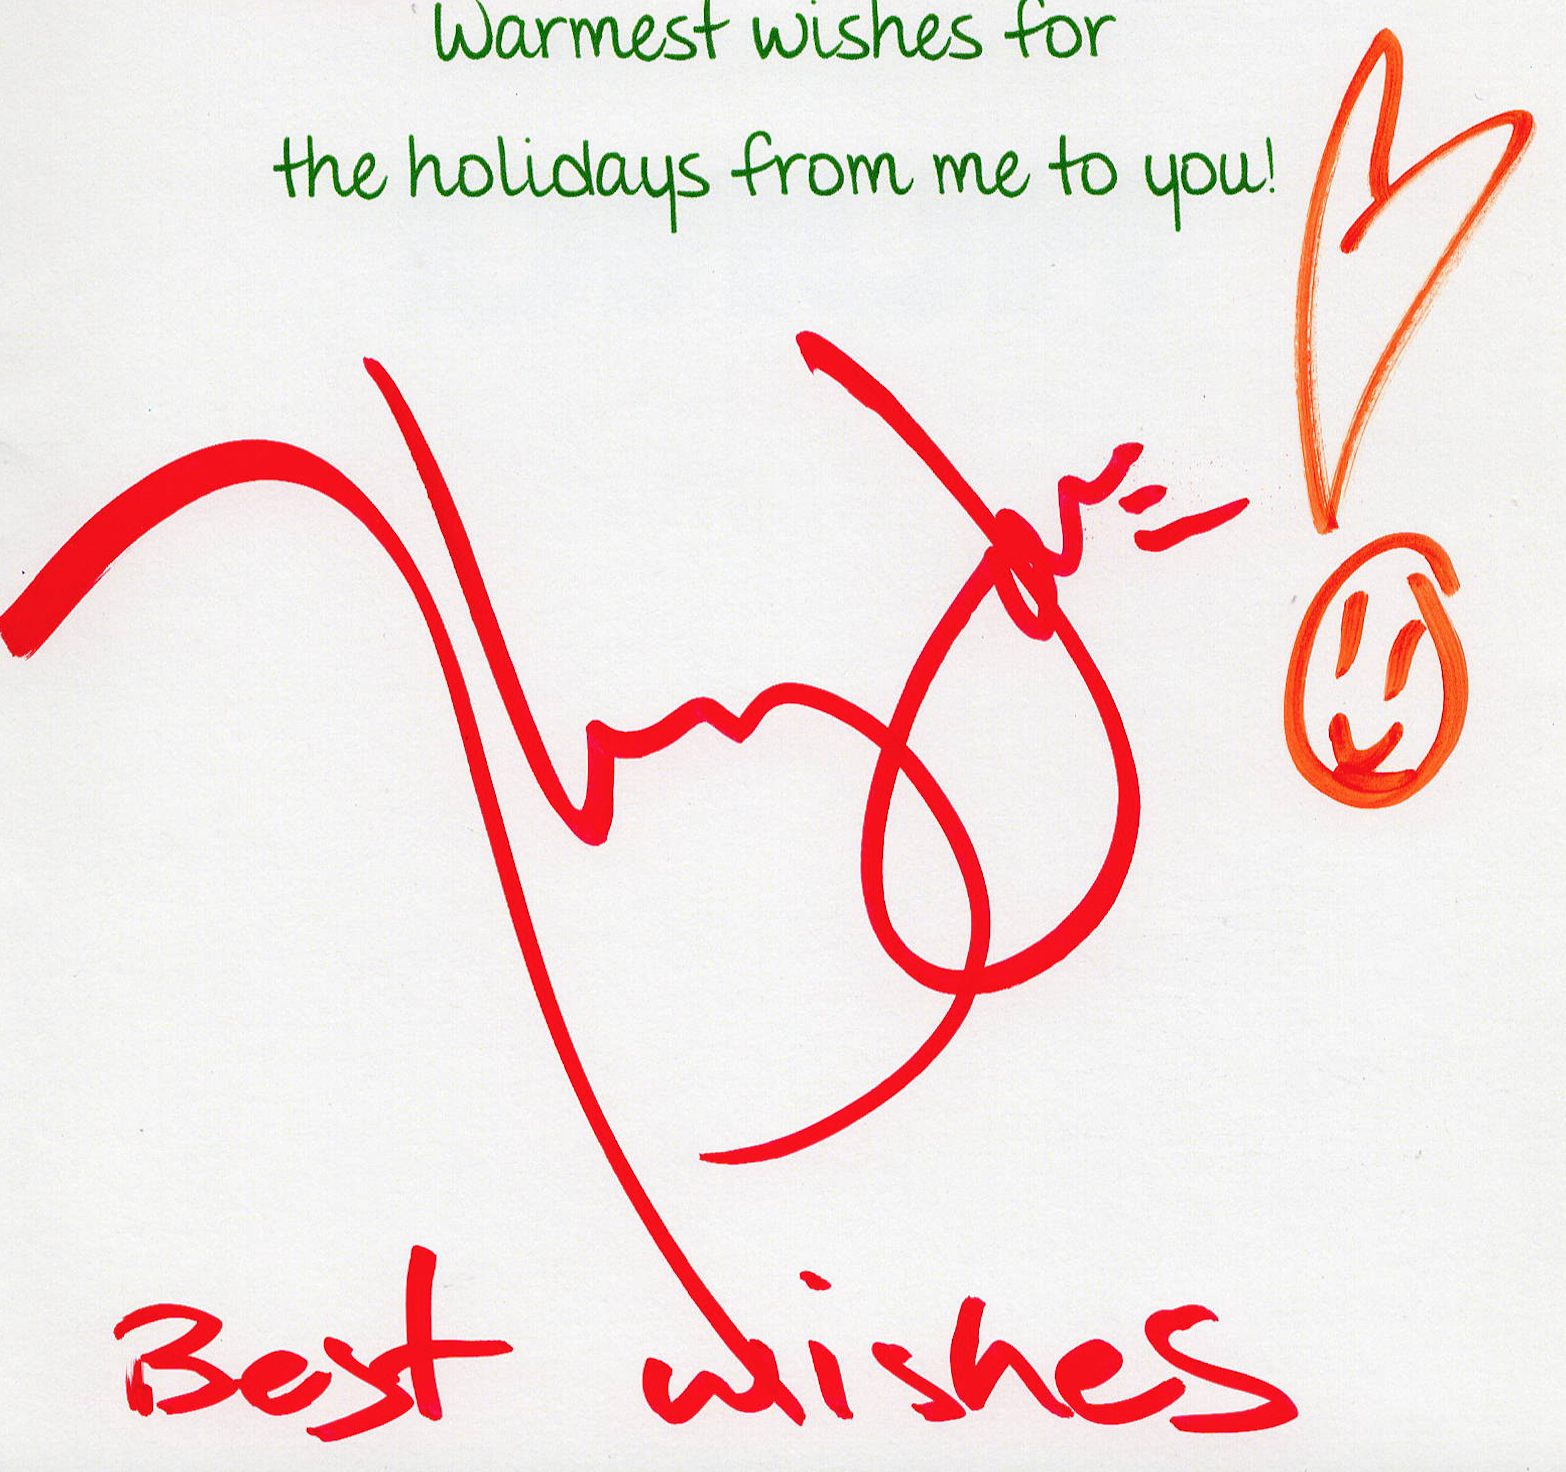 Warmest wishes for
the holidays from me to you!
Best wishes